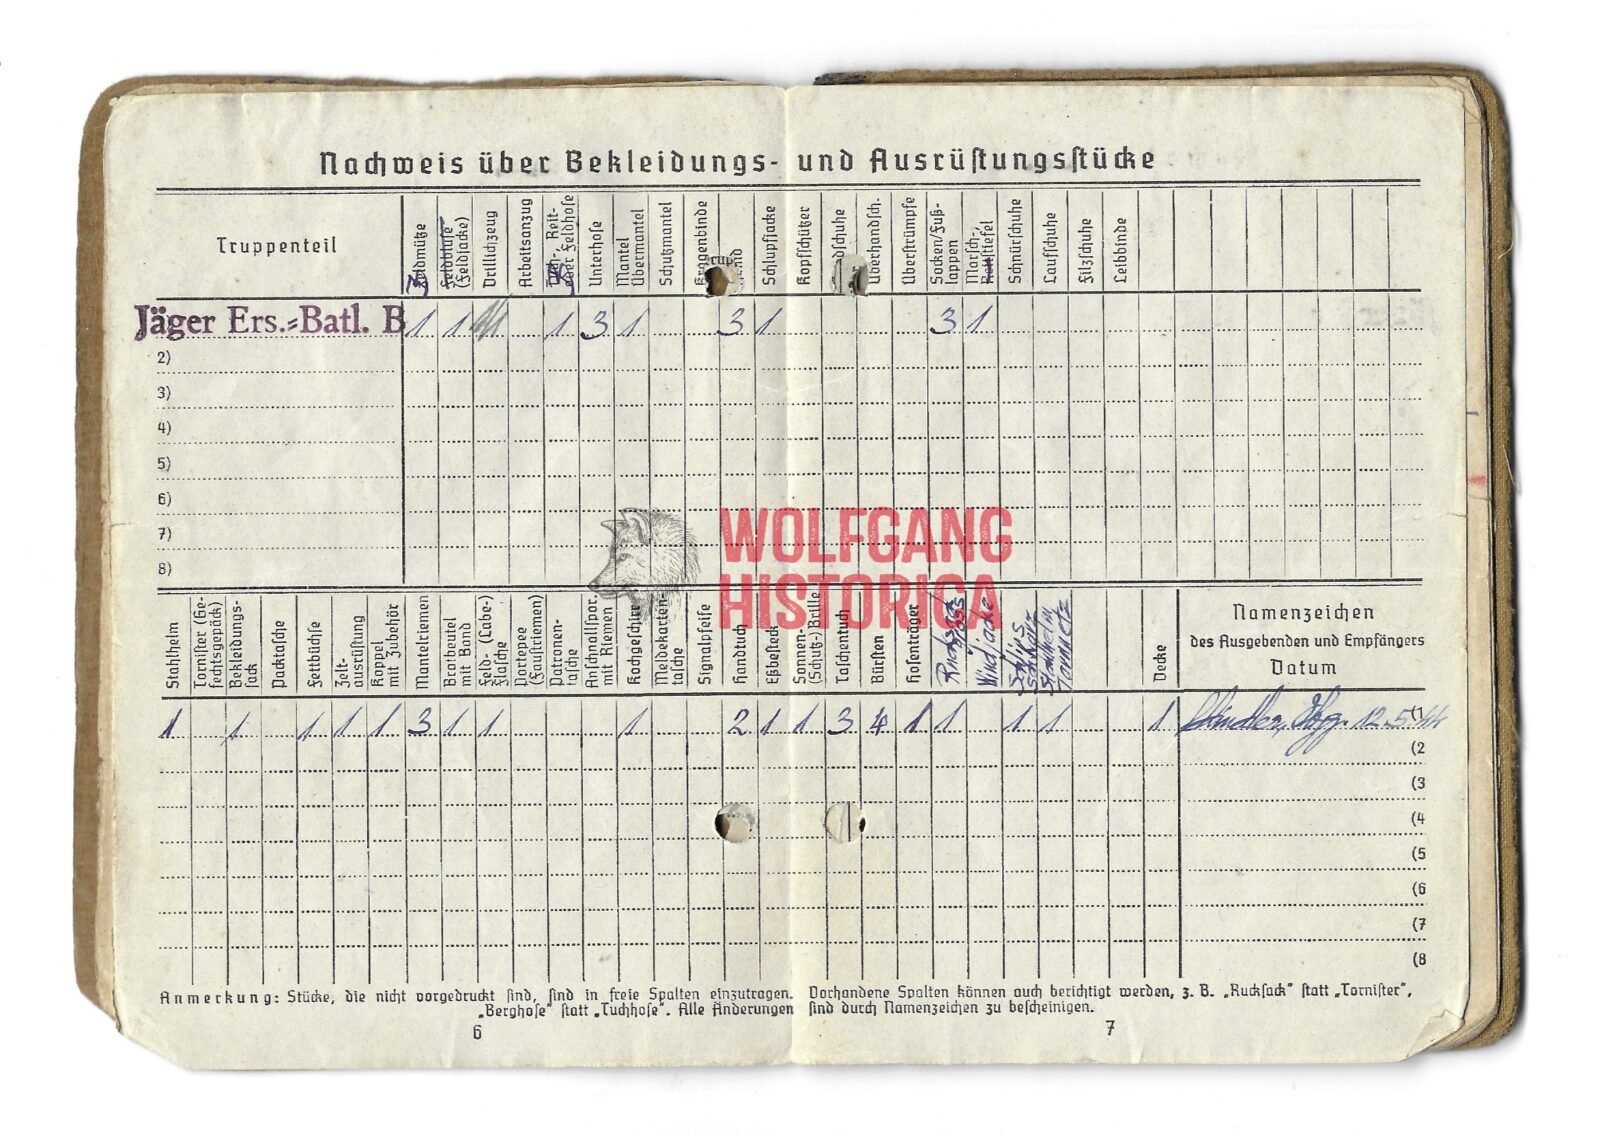 Nachweis über Bekleidungs- und Ausrüstungsstücke
Truppenteil
Feldmütze
Feldbluse
(Feldjacke)
Drillichzeug
Arbeitsanzug
Reit-
oder Feldhose
Unterhose
Mantel
Übermantel
Schutzmantel
Kragenbinde
Schlupfjacke
Kopfschützer
Überhandsch.
Überstrümpfe
Socken/Fuß-
lappen
Marsch-/
Schnürschuhe
Laufschuhe
Filzschuhe
Leibbinde
Jäger Ers.=Batl. B 1 1 1 3 1 3 1 3 1
2)
3)
4)
5)
6)
7)
8)
WOLFGANG
HISTORICA
Stahlhelm
Tornister (Ge-
fechtsgepäck)
Bekleidungs-
sack
Packtasche
Fettbüchse
Zelt-
ausrüstung
Koppel
mit Zubehör
Mantelriemen
Brotbeutel
mit Band
Feld- (Labe-)
flasche
Portepee
(Faustriemen)
Patronen-
tasche
Anschnallspor.
mit Riemen
Kochgeschirr
Meldekarten-
tasche
Signalpfeife
Handtuch
Eßbesteck
Sonnen-
(Schutz-) Brille
Taschentuch
Bürsten
Hosenträger
Rucksack
Windjacke
Decke
Namenzeichen
des Ausgebenden und Empfängers
Datum
1 1 1 1 1 3 1 1 1 2 1 1 3 4 1 1 1 1 1 12.5.44
(2
(3
(4
(5
(6
(7
(8
Anmerkung: Stücke, die nicht vorgedruckt sind, sind in freie Spalten einzutragen. Vorhandene Spalten können auch berichtigt werden, z. B. „Rucksack" statt „Tornister",
„Berghose" statt „Tuchhose". Alle Änderungen sind durch Namenzeichen zu bescheinigen.
6
7